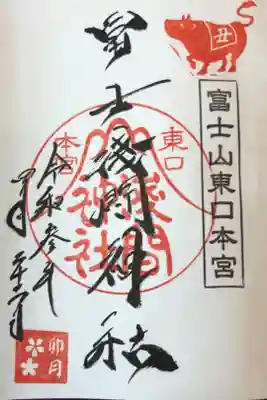 丑
富士山東口本宮
冨士浅間神社
東口
本宮
浅間
神社
令和参年
卯月